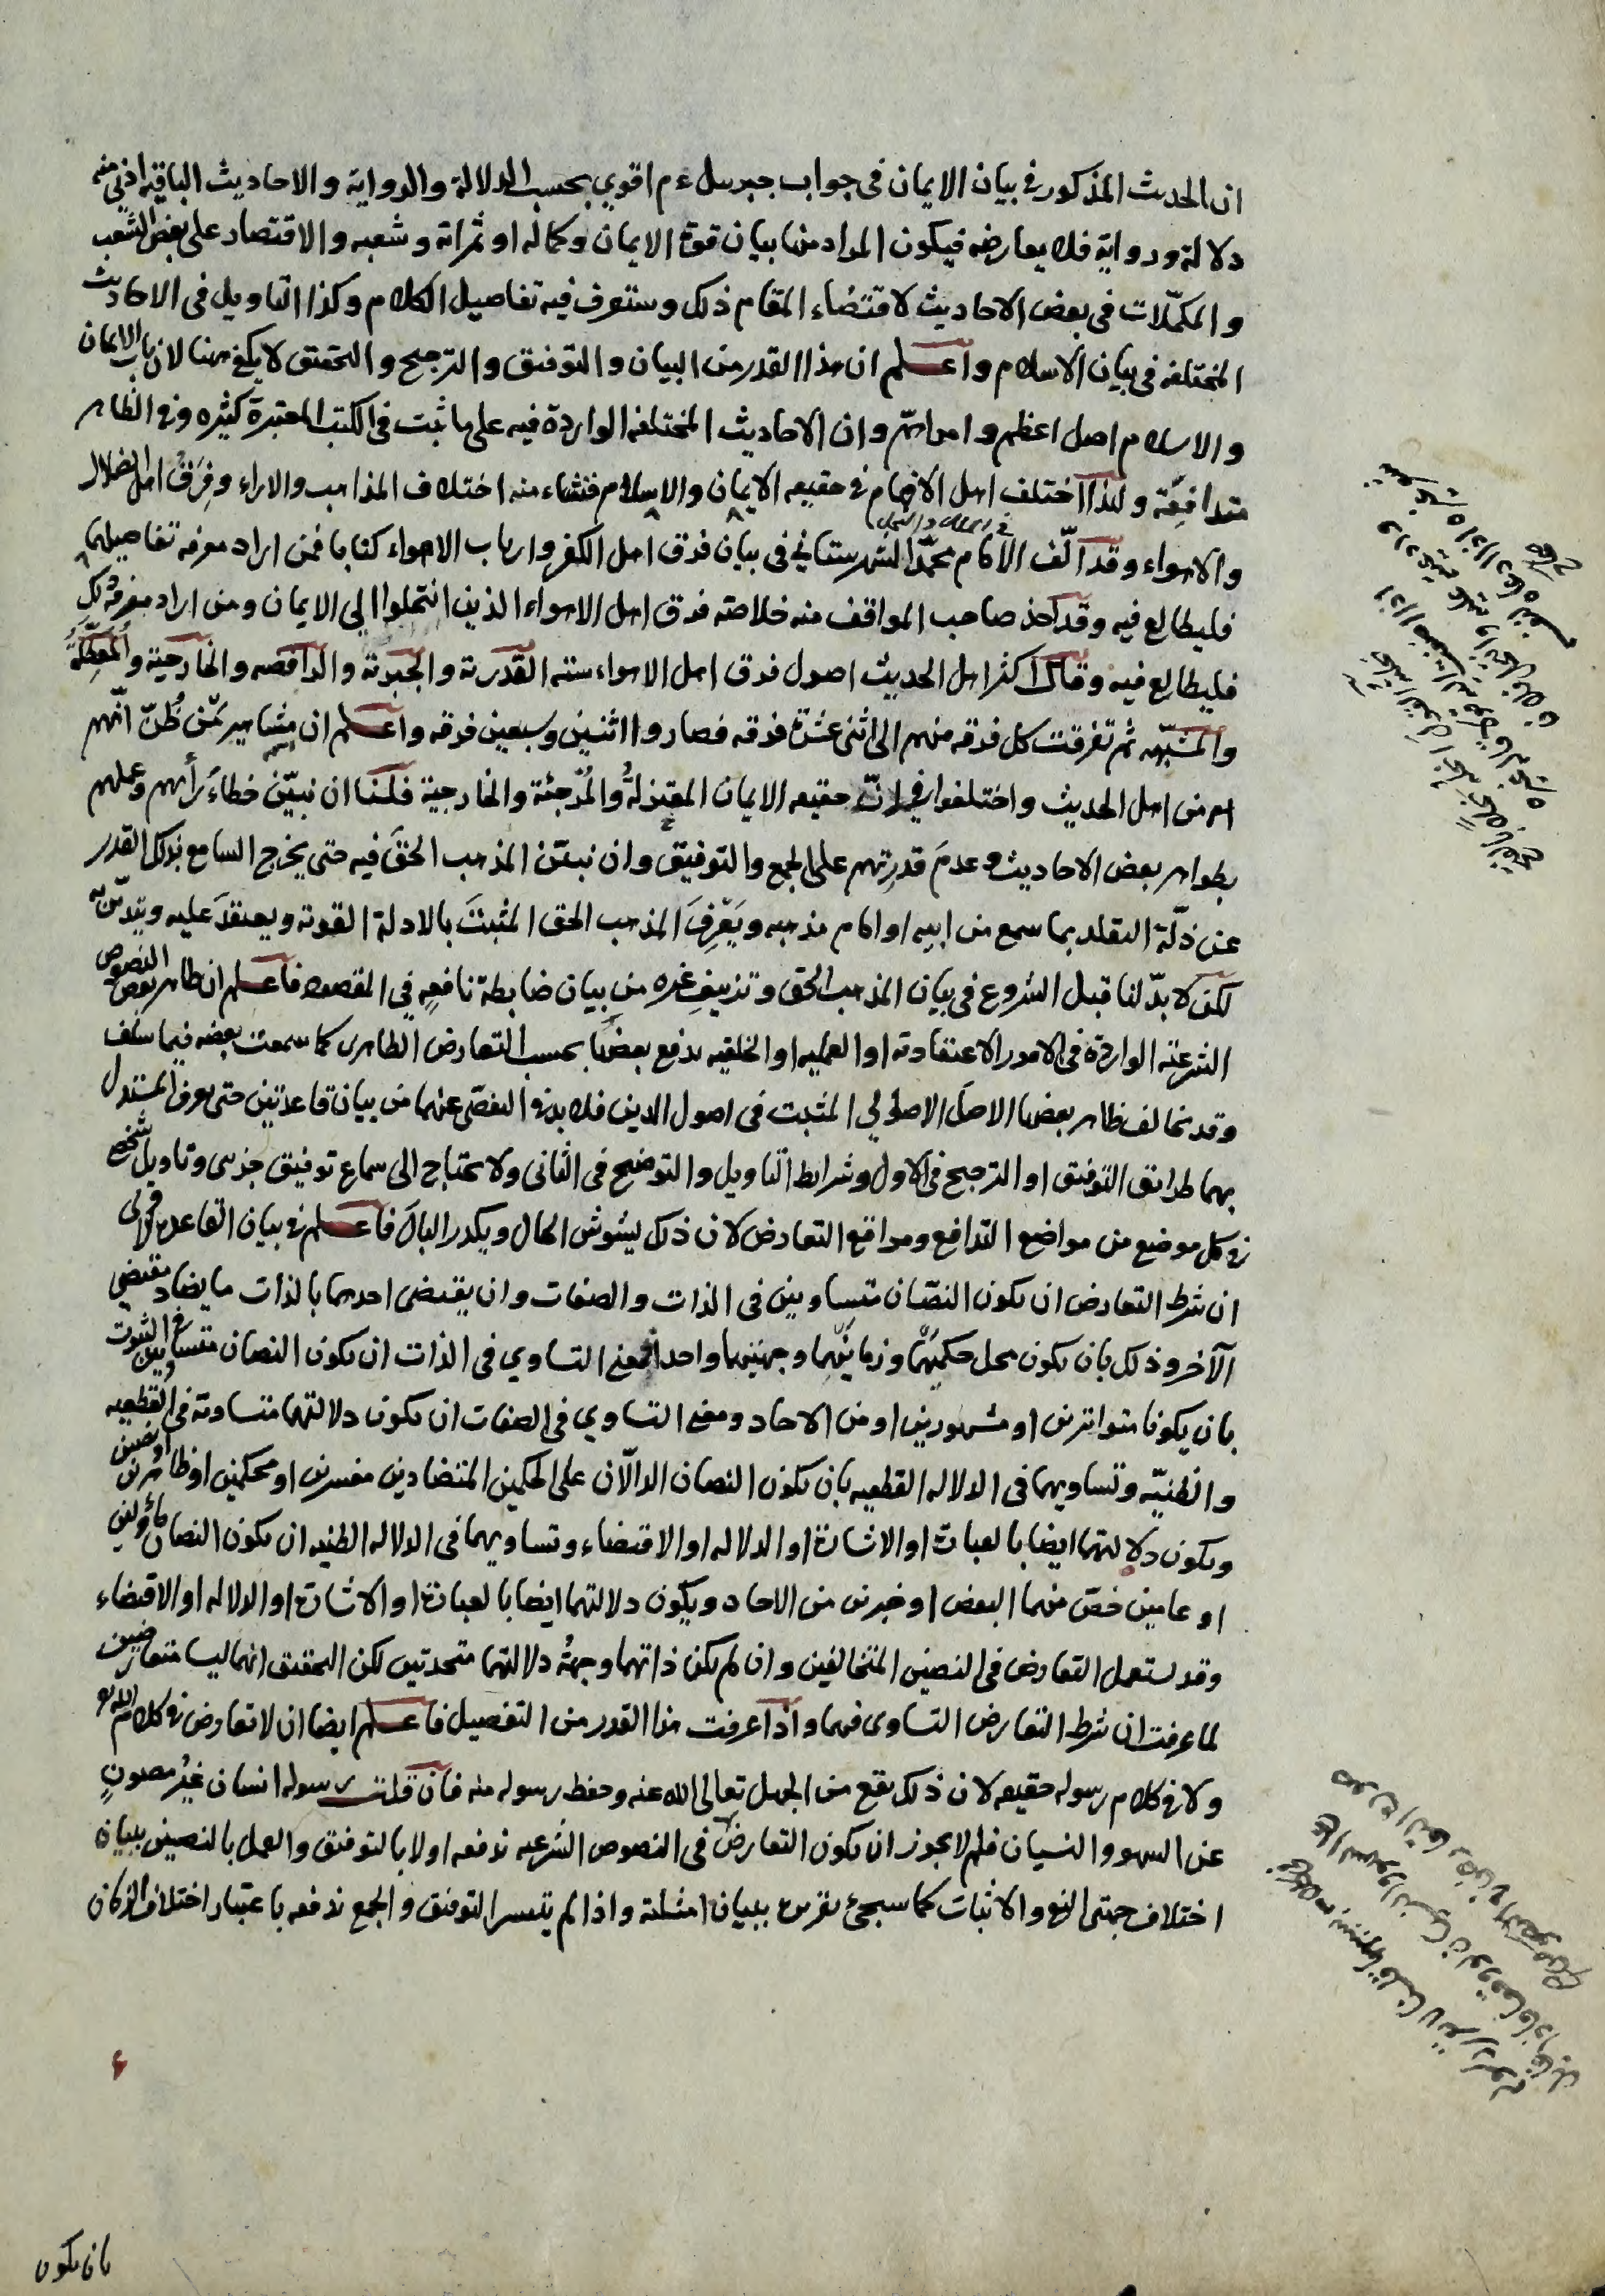 ان الحديث المذكور في بيان الايمان في جواب جبريل ء م اقوي بحسب الدلالة والرواية والاحاديث الباقية ادني منه
دلالة ورواية فلا يعارضه فيكون المراد منها بيان قوة الايمان وكماله او ثمراته وشعبه والاقتصار على بعض الشعب
والمكمّلات في بعض الاحاديث لاقتضاء المقام ذلك وستعرف فيه تفاصيل الكلام وكذا التاويل في الاحاديث
المختلفه في بيان الاسلام واعـلم ان هذا القدر من البيان والتوفيق والترجيح والتحقيق لا يكفي ههنا لان باب الايمان
والاسلام اصل اعظم وامر اهمّ وان الاحاديث المختلفه الواردة فيه على ما ثبت في الكتب المعتبرة كثيره وفي الظاهر
متدافِعَة ولهذا اختلف اهل الافهام في حقيقه الايمان والاسلام فنشاء منه اختلاف المذاهب والاراء وفِرَقُ اهل الضلال
والاهواء وقد الّف الامام محمّد الشهرستاني في بيان فرق اهل الكفر وارباب الاهواء كتابا فمن اراد معرفه تفاصيلهما
في الملل والنحل
فليطالع فيه وقد اخذ صاحب المواقف منه خلاصته فرق اهل الاهواء الذين انتحلوا الي الايمان ومن اراد معرفة ذلك
فليطالع فيه وقال اكثر اهل الحديث اصول فرق اهل الاهواء سته القدرية والجبرية والرافضه والخارجية والمُعَطِّلَةُ
والمشبّهه ثم تفرقت كل فرقه منهم الى اثنى عشرة فرقه فصاروا اثنين وسبعين فرقه واعـلم ان مشاهير ممّن ظُنّ انّهم
هم من اهل الحديث واختلفوا في انّ حقيقه الايمان المعتزلةُ والمُرْجئة والخارجية فلنا ان نبيّن خطاءَ رأيهم وعملهم
بظواهر بعض الاحاديث وعدمَ قدرتهم على الجمع والتوفيق وان نبيّن المذهب الحقَ فيه حتى يخرج السامع بذلك القدر
عن ذلّة التقليد بما سمع من ابيه او امام مذهبه ويَعْرِفَ المذهب الحق المثبتَ بالادلة القوية ويعتقدَ عليه ويتديّن به
لكن لا بدّ لنا قبل الشروع في بيان المذهب الحق وتزييف غيره من بيان ضابطة نافعهِ في المقصود فاعـلم ان ظاهر بعض النصوص
الشرعيّة الواردة في الامور الاعتقادية او العمليه او الخلقيه يدفع بعضها بحسب التعارض الظاهرى كما سمعت بعضه فيما سلف
وقد يخالف ظاهر بعضها الاصلَ الاصولي المثبت في اصول الدين فلا بد في التفصّى عنهما من بيان قاعدتين حتى يعرف المستدل
بهما طرائق التوفيق او الترجيح في الاول وشرايط التاويل والتوضيح في الثانى ولا يحتاج الى سماع توفيق جزىي وتاويل شخصي
في كل موضع من مواضع التدافع ومواقع التعارض لان ذلك يشوش الحال ويكدر البالَ فاعـلم في بيان القاعدة الاولى
ان شرط التعارض ان يكون النصّان متساويين في الذات والصفات وان يقتضى احدهما بالذات ما يضاد مقتضى
الآخر وذلك بان يكون محل حكميهما وزمانيهما وجهتيهما واحدا فمعنى التساوي في الذات ان يكون النصان متساويين في الثبوت
بان يكونا متواترين او مشهورين او من الاحاد ومعنى التساوي في الصفات ان يكون دلالتهما متساوية في القطعيه
والظنيّه وتساويهما في الدلاله القطعيه بان يكون النصان الدالّان على الحكمين المتضادين مفسرين او محكمين او ظاهرين او نصين
ويكون دلالتهما ايضا بالعبارة او الاشارة او الدلاله او الاقتضاء وتساويهما في الدلاله الظنيه ان يكون النصان مأوّلين
او عامين خصّ منهما البعض او خبرين من الاحاد ويكون دلالتهما ايضا بالعبارة او الاشارة او الدلاله او الاقتضاء
وقد يستعمل التعارض في النصين المتخالفين وان لم يكن ذاتهما وجهةُ دلالتهما متحدتين لكن التحقيق انهما ليسا متعارضين
لما عرفت ان شرط التعارض التساوى فيهما واذا عرفت هذا القدر من التفصيل فاعـلم ايضا ان لا تعارض في كلام الله تع
ولا في كلام رسوله حقيقه لان ذلك يقع من الجهل تعالى الله عنه وحفظ رسوله منه فان قلت رسوله انسان غيْر مصونٍ
عن السهو والنسيان فلم لا يجوز ان يكون التعارض في النصوص الشرعيه ندفعه اولا بالتوفيق والعمل بالنصين ببيان
اختلاف جهتى النفي والاثبات كما سيجئ نفرع ببيان امثلة واذا لم يتيسر التوفيق والجمع ندفعه باعتبار اختلاف الزمان
بان يكون